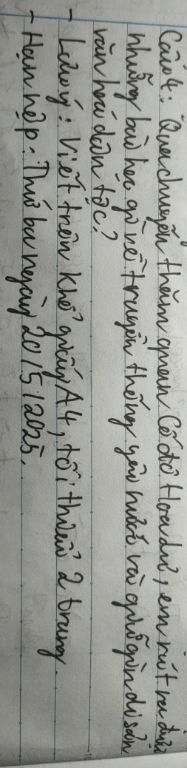 Câu 4: Qua chuyến thăm quan Cố đô Hoa Lư, em rút ra được
những bài học gì về truyền thống yêu nước và giữ gìn di sản
văn hoá dân tộc?
- Lưu ý: Viết trên khổ giấy A4, tối thiểu 2 trang.
- Hạn nộp: Thứ ba ngày 20/5/2025.